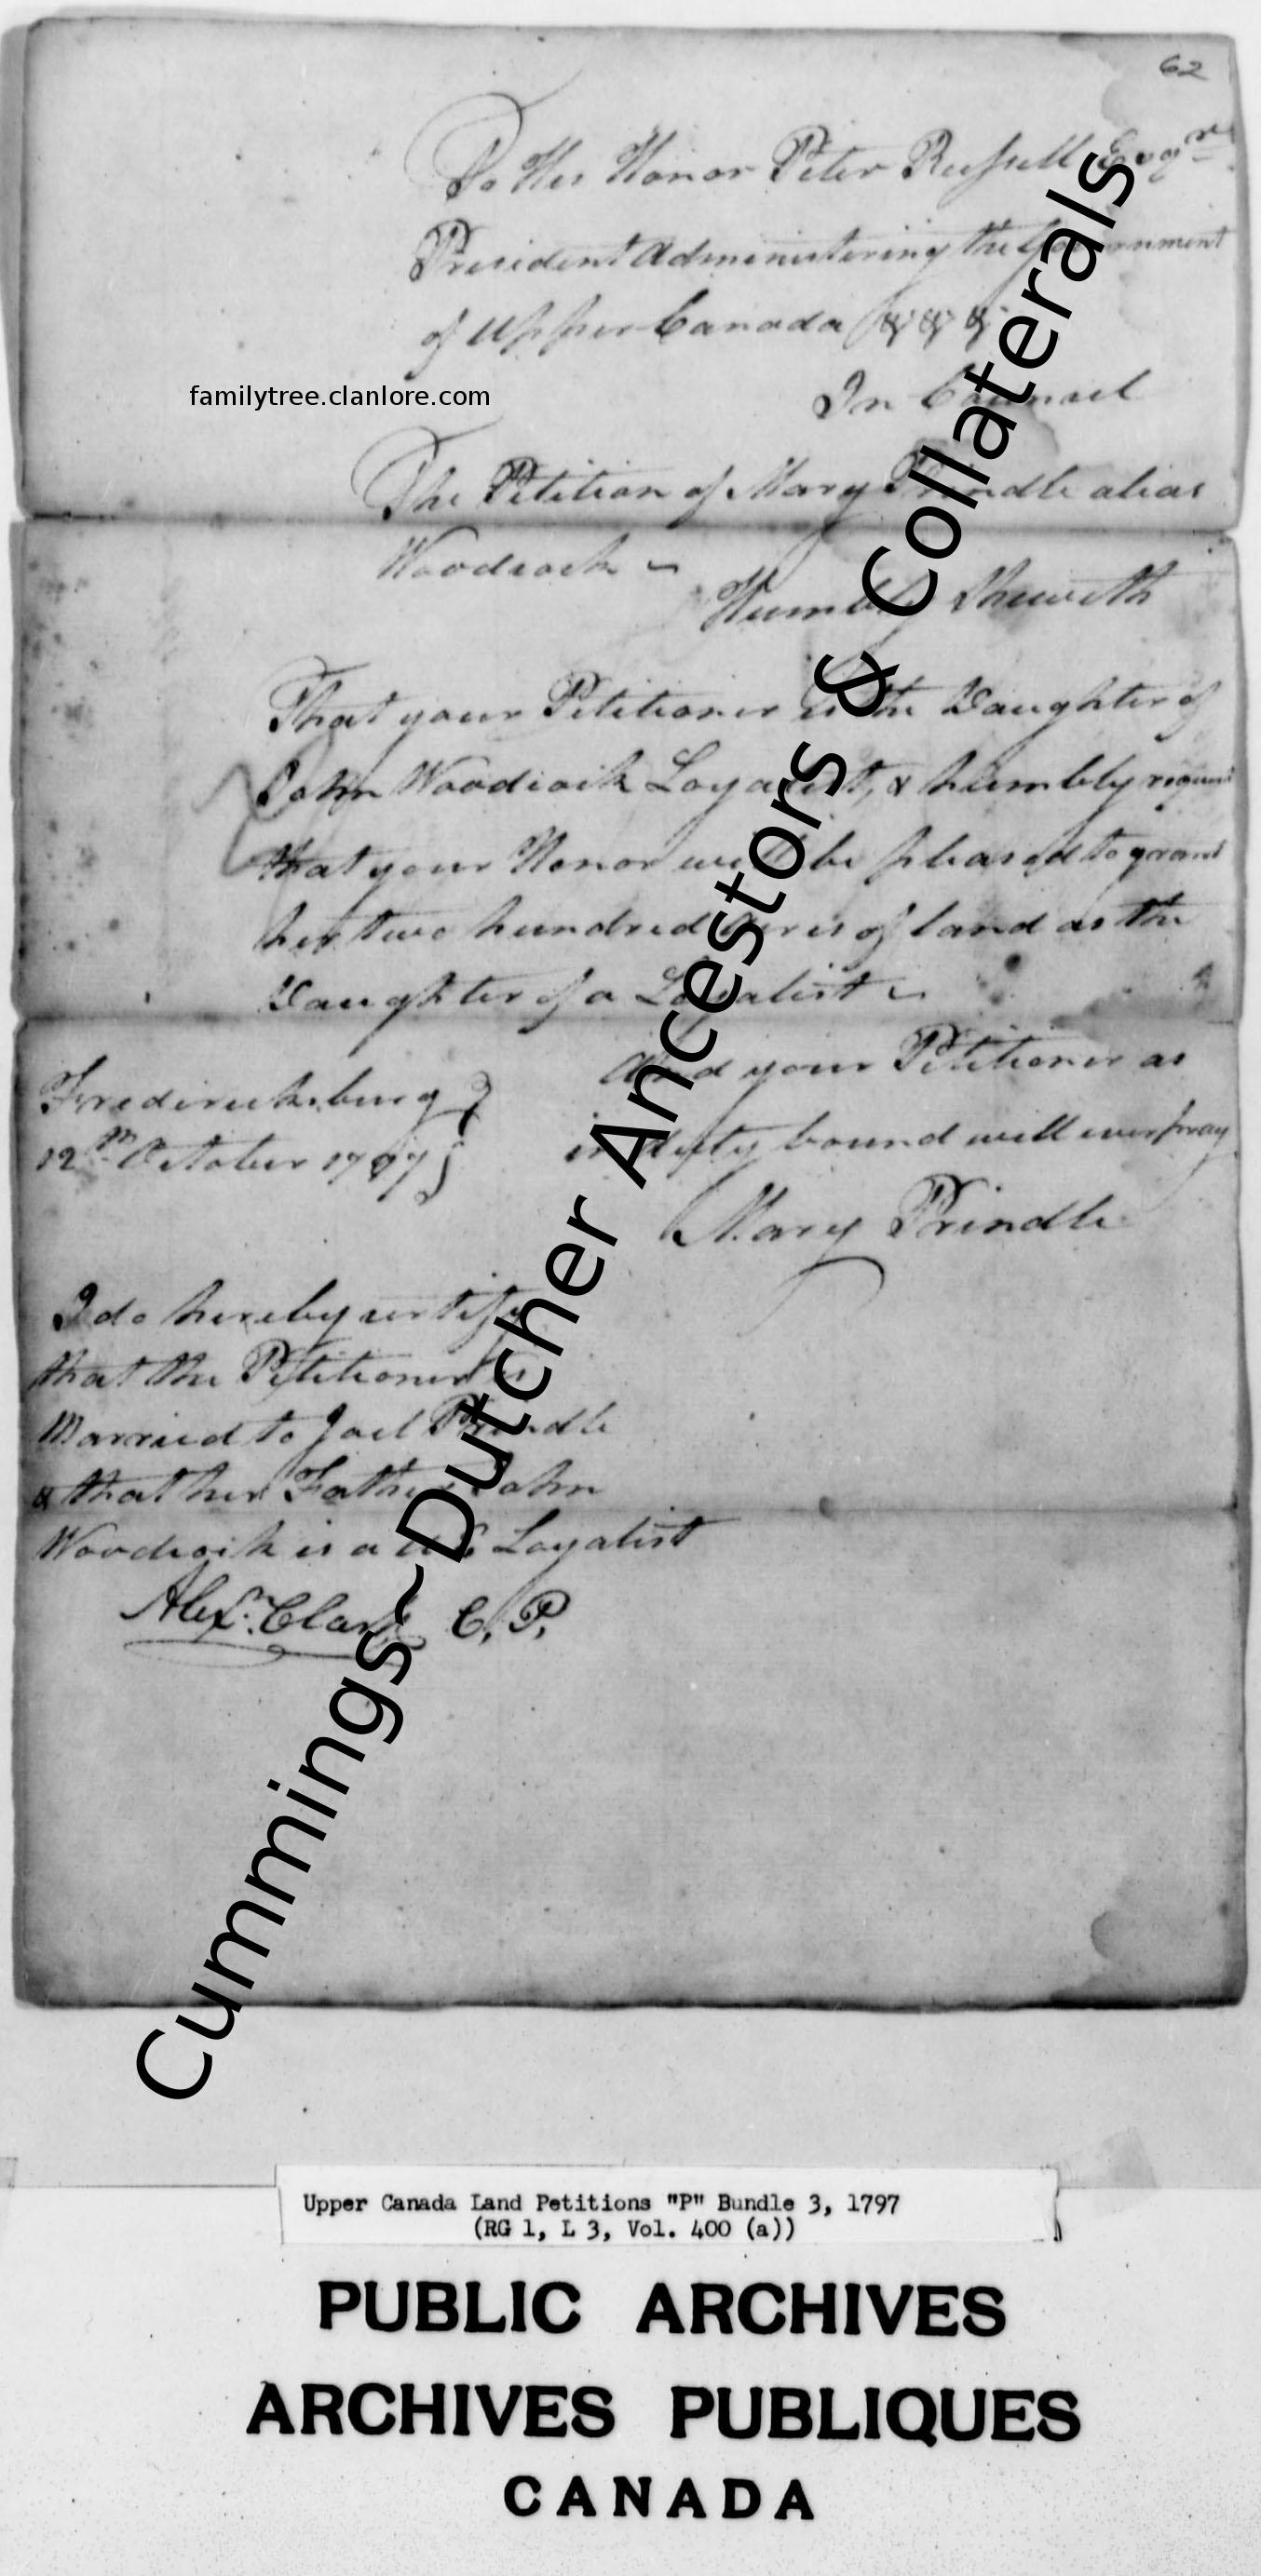 62
To His Honor Peter Russell Esqre
President Administering the Government
of Upper Canada &c &c &c
In Council
familytree.clanlore.com
The Petition of Mary Prindle alias
Woodcock ~
Humbly Sheweth
That your Petitioner is the Daughter of
John Woodcock Loyalist, & humbly requests
that your Honor will be pleased to grant
her two hundred acres of land as the
Daughter of a Loyalist ~
And your Petitioner as
in duty bound will ever pray
Mary Prindle
Fredericksburg }
12th October 1797 }
I do hereby certify
that the Petitioner is
Married to Joel Prindle
& that her Father John
Woodcock is a U.E Loyalist
Alexr. Clark C.P.
Cummings~Dutcher Ancestors & Collaterals
Upper Canada Land Petitions "P" Bundle 3, 1797
(RG 1, L 3, Vol. 400 (a))
PUBLIC ARCHIVES
ARCHIVES PUBLIQUES
CANADA